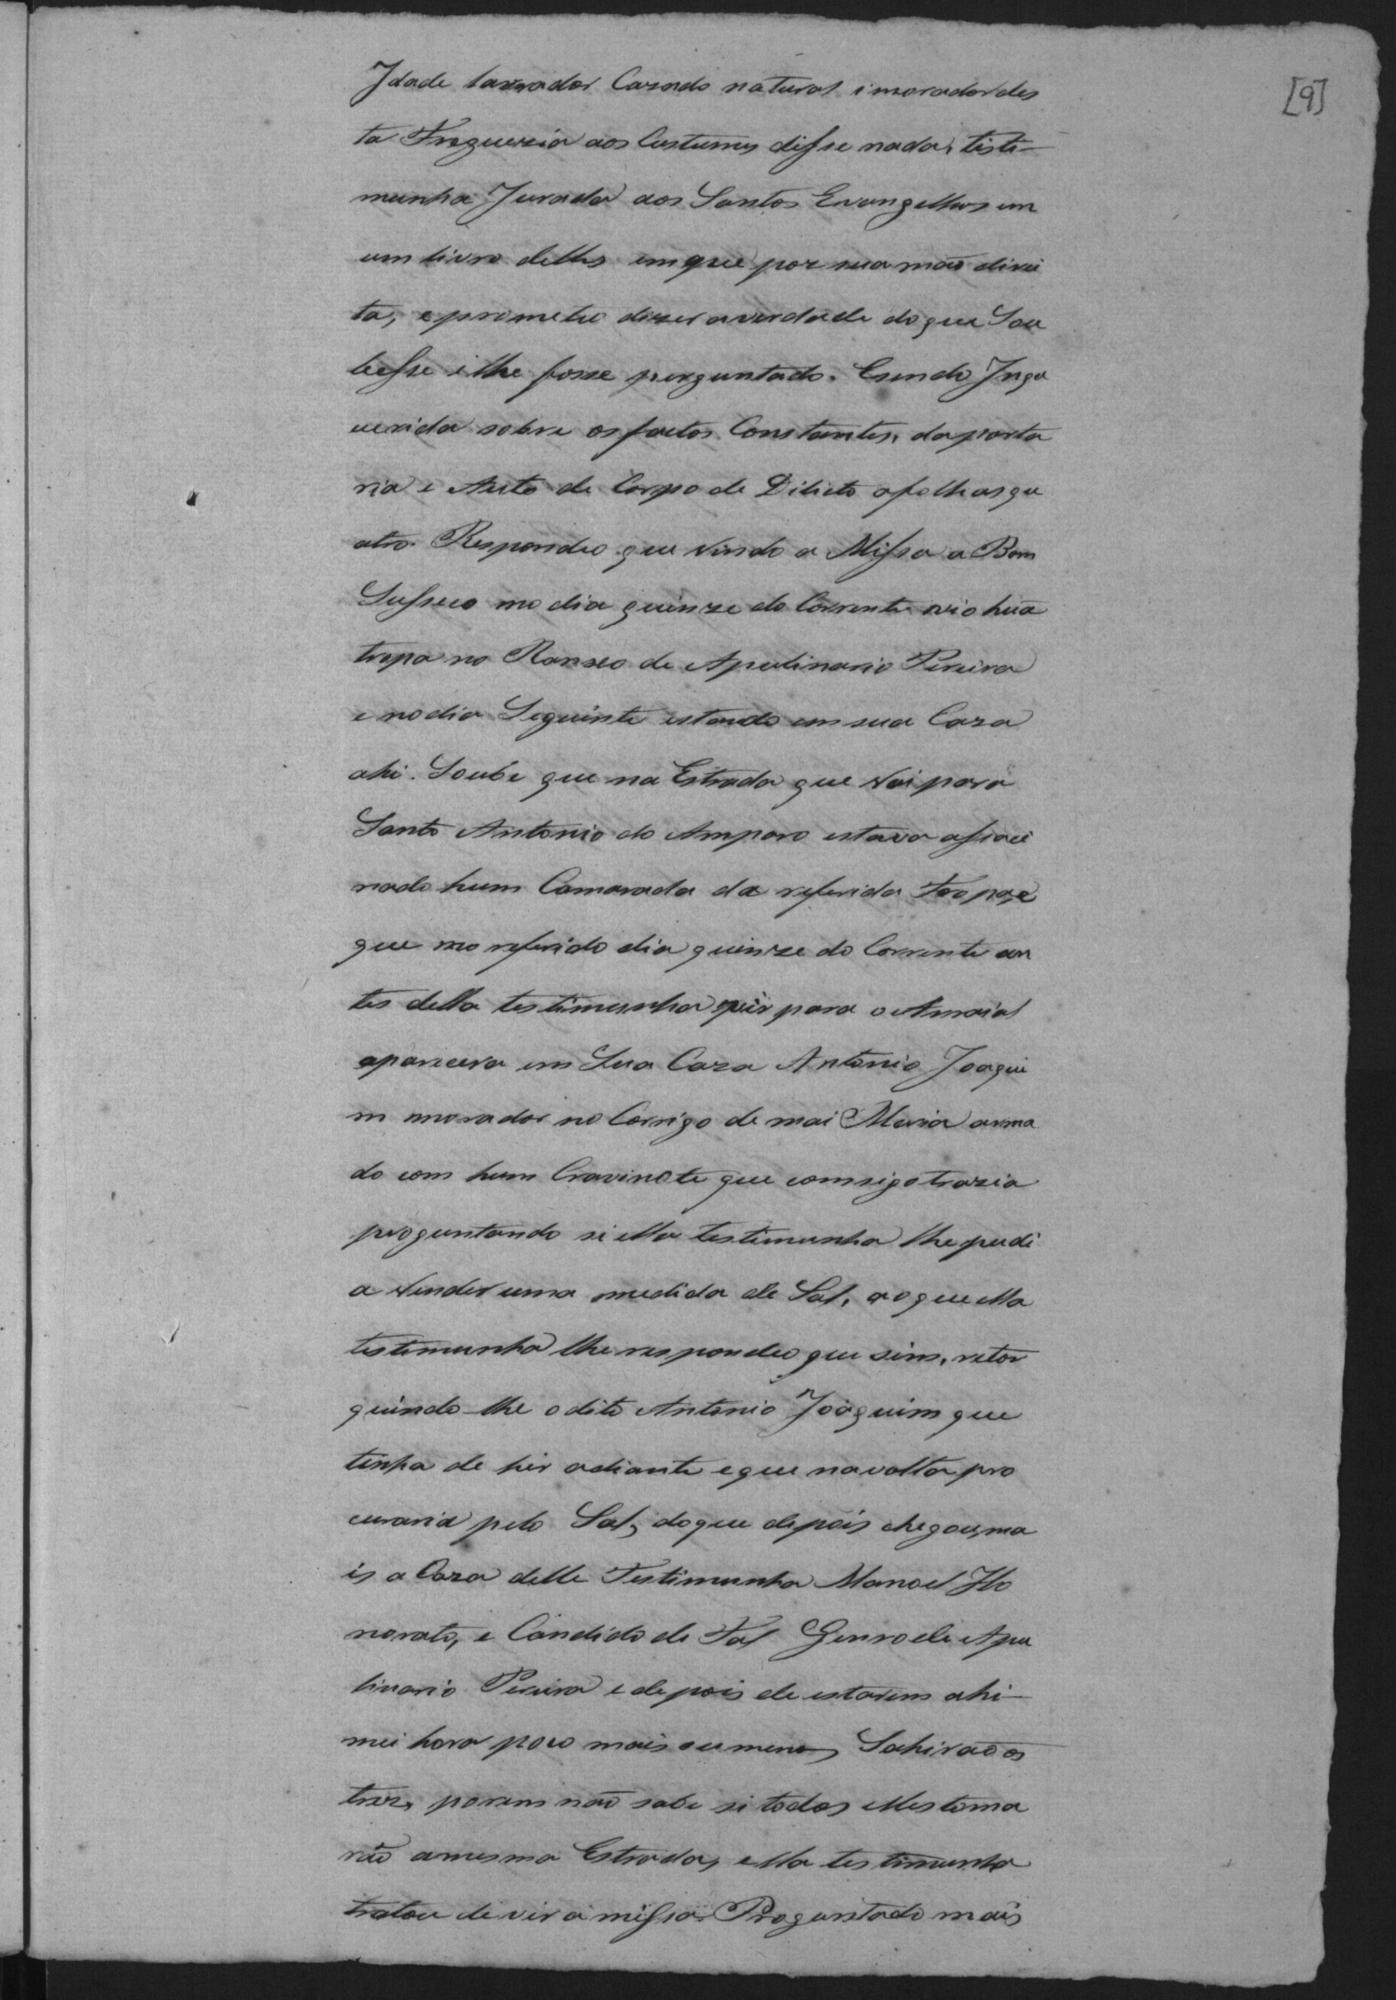 [9]
Idade lavrador Cazado natural i morador des
ta Freguezia aos Custumes disse nada, testi-
munha Jurada aos Santos Evangelhos em
um livro delles em que poz sua maõ direi
ta, e prometeo dizer a verdade do que Sou
besse i lhe fosse perguntado. E sendo Inqu
uerida sobre os factos Constantes, da porta
ria e Auto de Corpo de Dilicto a folhas qu
atro. Respondeo que vindo a Missa a Bom
Susseço no dia quinze do Corrente vio hũa
tropa no Ranxo de Apulinario Pereira
e no dia Seguinte estando em sua Caza
ahi. Soube que na Estrada que vai para
Santo Antonio do Amparo estava assaci
nado hum Camarada da referida Tropa, e
que no referido dia quinze do Corrente an
tes della testimunha vir para o Arraial
aparecera em Sua Caza Antonio Joaqui
m morador no Corrigo de mai Maria arma
do com hum Cravinote que comsigo trazia
proguntando si ella testimunha lhe pudi
a vender uma medida de Sal, ao que ella
testimunha lhe respondeo que sim, retor
quindo-lhe o dito Antonio Joaquim que
tinha de hir adiante e que na volta pro
curaria pelo Sal, do que depois chegou, ma
is a Caza delle Testimunha Manoel Ho
norato, e Candido de Tal Genro de Apu
linario Pereira e depois de estarem ahi-
mei hora poco mais ou menos Sahiraõ os
trez, porem naõ sabe si todos elles toma
rão a mesma Estrada, e ella testimunha
tratou de vir a missa. Proguntado mais